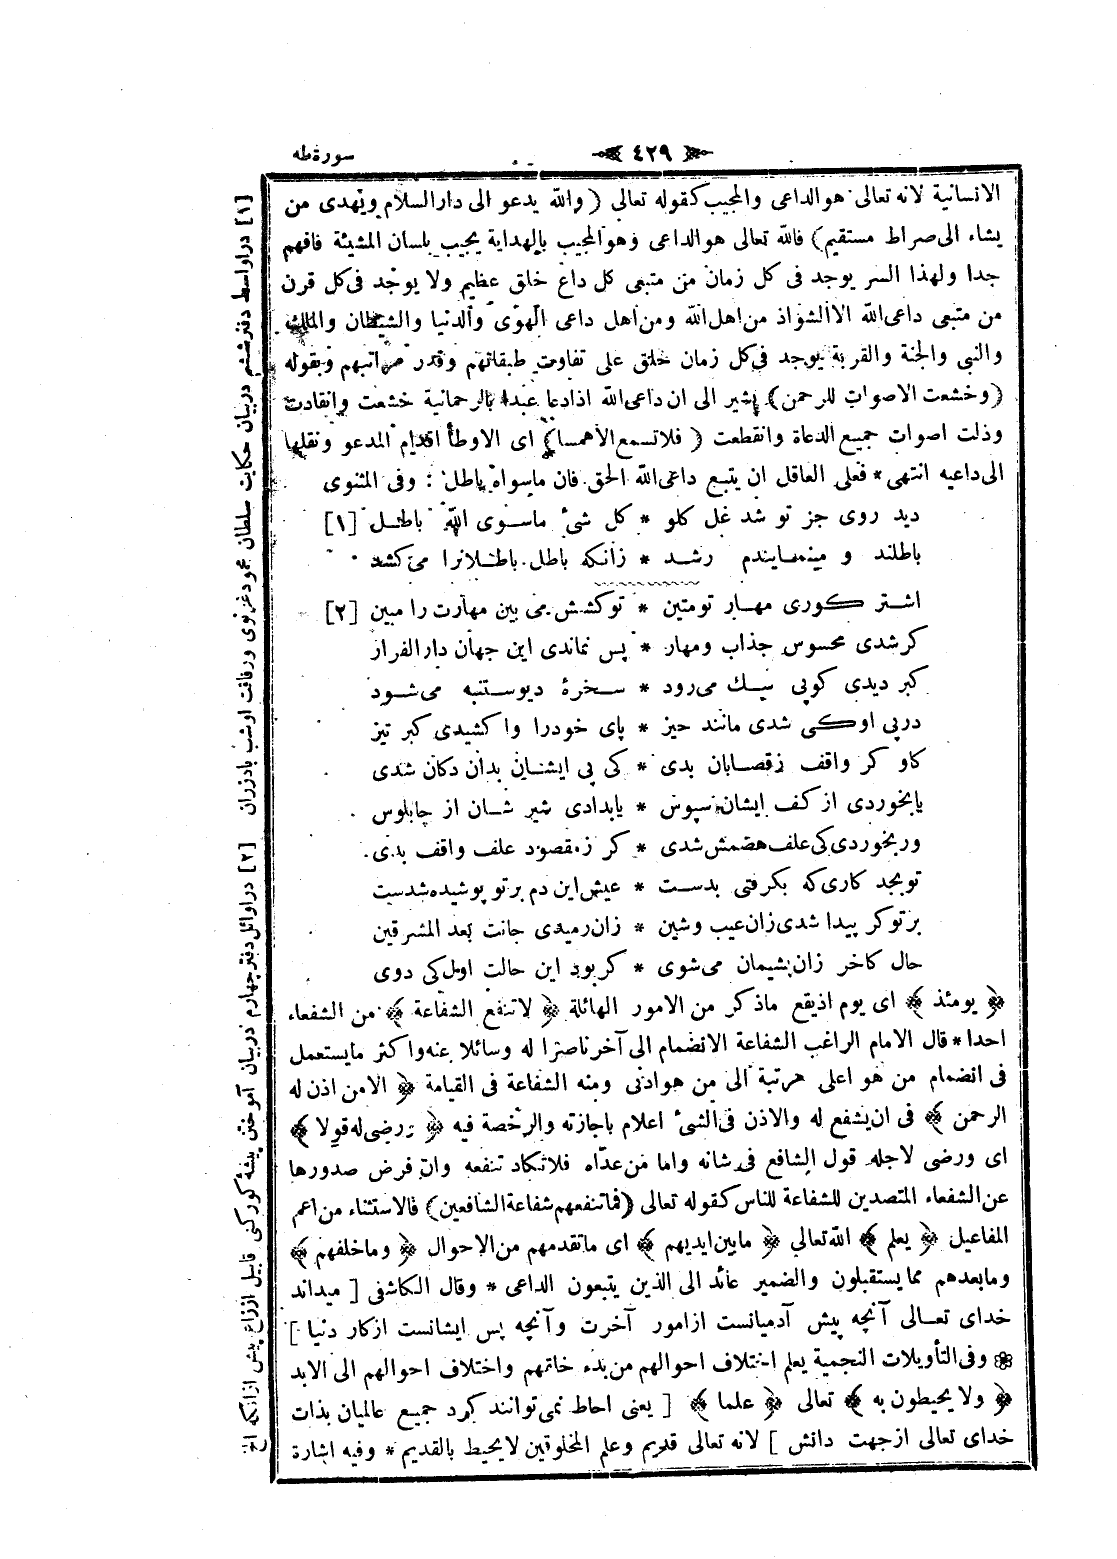 سورةطه
٤٢٩
الانسانية لانه تعالى هوالداعى والمجيب كقوله تعالى (والله يدعو الى دار السلام ويهدى من
يشاء الى صراط مستقيم) فالله تعالى هوالداعى وهو المجيب بالهداية يجيب بلسان المشيئة فافهم
جدا ولهذا السر يوجد فى كل زمان من متبعى كل داع خلق عظيم ولا يوجد فى كل قرن
من متبعى داعى الله الا الشواذ من اهل الله ومن اهل داعى الهوى والدنيا والشيطان والملك
والنبى والجنة والقربة يوجد فى كل زمان خلق على تفاوت طبقاتهم وقدر مراتبهم وبقوله
(وخشعت الاصوات للرحمن) يشير الى ان داعى الله اذا دعا عبدا بالرحمانية خشعت وانقادت
وذلت اصوات جميع الدعاة وانقطعت ( فلاتسمع الاهمسا) اى الاوطأ اقدام المدعو ونقلها
الى داعيه انتهى * فعلى العاقل ان يتبع داعى الله الحق فان ماسواه باطل : وفى المثنوى
ديد روى جز تو شد غل كلو * كل شئ ماسوى الله باطل [١]
باطلند و مينمايندم رشد * زانكه باطل باطلانرا مى كشد
اشتر كورى مهار تومتين * توكشش مى بين مهارت را مبين [٢]
كرشدى محسوس جذاب ومهار * پس نماندى اين جهان دار الفرار
كبر ديدى كوپى سك مى رود * سخرۀ ديوستنبه مى شود
درپى اوكى شدى مانند حيز * پاى خودرا وا كشيدى كبر تيز
كاو كر واقف زقصابان بدى * كى پى ايشان بدان دكان شدى
يابخوردى از كف ايشان سپوس * يابدادى شير شان از چاپلوس
وربخوردى كى علف هضمش شدى * كر زمقصود علف واقف بدى
توبجد كارى كه بكرفتى بدست * عيش اين دم برتو پوشيده شدست
برتوكر پيدا شدى زان عيب وشين * زان رميدى جانت بعد المشرقين
حال كاخر زان پشيمان مى شوى * كر بود اين حالت اول كى دوى
﴿ يومئذ ﴾ اى يوم اذ يقع ماذكر من الامور الهائلة ﴿ لاتنفع الشفاعة ﴾ من الشفعاء
احدا * قال الامام الراغب الشفاعة الانضمام الى آخر ناصرا له وسائلا عنه واكثر مايستعمل
فى انضمام من هو اعلى مرتبة الى من هوادنى ومنه الشفاعة فى القيامة ﴿ الامن اذن له
الرحمن ﴾ فى ان يشفع له والاذن فى الشئ اعلام باجازته والرخصة فيه ﴿ ورضى له قولا ﴾
اى ورضى لاجله قول الشافع فى شانه واما من عداه فلاتكاد تنفعه وان فرض صدورها
عن الشفعاء المتصدين للشفاعة للناس كقوله تعالى (فماتنفعهم شفاعة الشافعين) فالاستثناء من اعم
المفاعيل ﴿ يعلم ﴾ الله تعالى ﴿ مابين ايديهم ﴾ اى ماتقدمهم من الاحوال ﴿ وماخلفهم ﴾
ومابعدهم مما يستقبلون والضمير عائد الى الذين يتبعون الداعى * وقال الكاشفى [ ميداند
خداى تعالى آنچه پيش آدميانست ازامور آخرت وآنچه پس ايشانست ازكار دنيا ]
❁ وفى التأويلات النجمية يعلم اختلاف احوالهم من بدء خاتمهم واختلاف احوالهم الى الابد
﴿ ولا يحيطون به ﴾ تعالى ﴿ علما ﴾ [ يعنى احاطه نمى توانند كرد جميع عالميان بذات
خداى تعالى ازجهت دانش ] لانه تعالى قديم وعلم المخلوقين لايحيط بالقديم * وفيه اشارة
[١] دراواسط دفتر ششم دربيان حكايت سلطان محمود غزنوى ورفاقت اوشب بادزدان [٢] دراوائل دفتر چهارم دربيان آموختن پيشۀ كوركنى قابيل اززاغ پيش ازانكه الخ